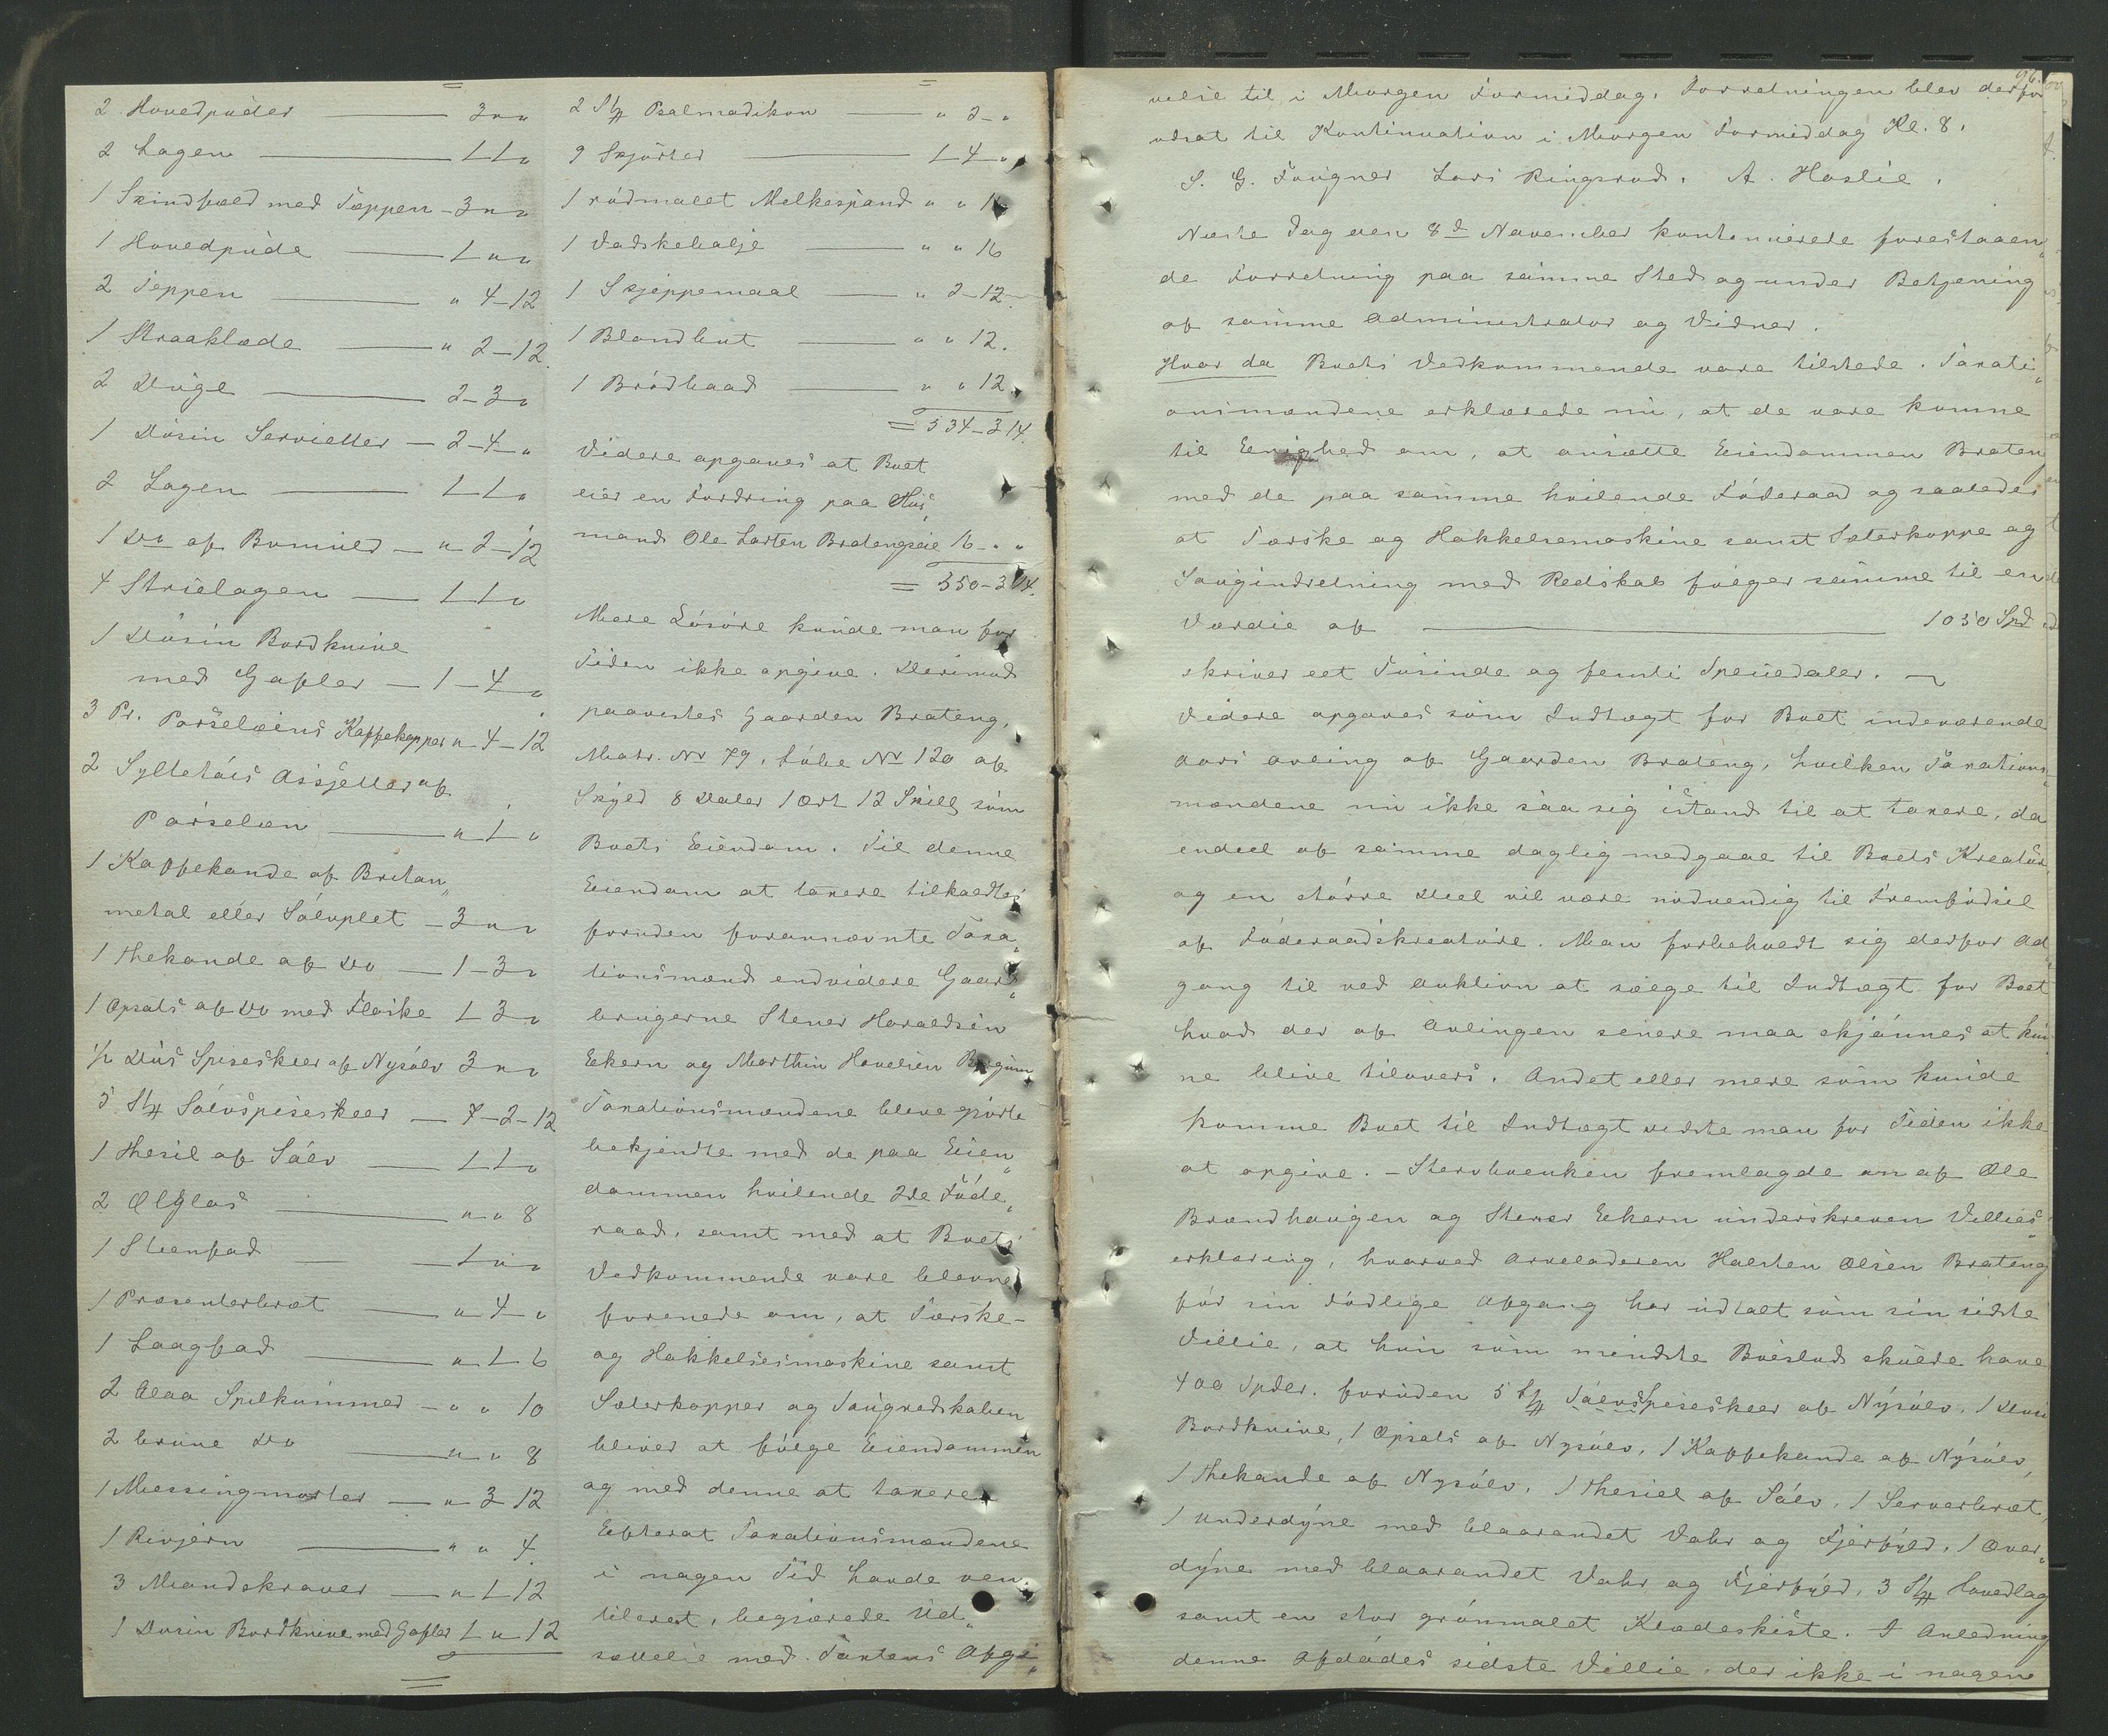 2 Hovedpuder — 3 " "
2 Lagen — 1 1 "
1 Skindfæld med Tæppen — 3 " "
1 Hovedpude — 1 " "
2 Teppen — " 4 - 12
1 Straaklæde — " 2 - 12.
2 Duge — 2 - 3 "
1 Dusin Servietter — 2 - 4 - "
2 Lagen — 1 1 "
1 Do af Bomuld — " 2 - 12
4 Strielagen — 1 1 "
1 Dusin Bordknive
med Gafler — 1 - 4 "
3 Pr. Porselæins Kaffekopper " 4 - 12
2 Syltetøis Assjetter af
Porselæn — " 1 "
1 Kaffekande af Britan„
metal eller Sølvplet — 3 " "
1 Thekande af Do — 1 - 3 "
1 Opsats af Do med Flaske 1 3 "
1/2 Dus Spiseskeer af Nysølv 3 " "
5 Stk Sølvspiseskeer — 7 - 2 - 12
1 Thesil af Sølv — 1 1 "
2 Ølglas — " " 8
1 Steenfad — 1 " "
1 Præsenterbræt — " 4 "
1 Laagfad — " 1 6
2 blaa Spilkummer — " " 10
2 brune Do — " " 8
1 Messingmorter — " 3 12
1 Rivjern — " " 4.
3 Mandskraver — " 1 12
1 Dusin Bordknive med Gafler 1 " 12
2 Stk Psalmodikon — " 2 - "
9 Skjørter — 1 4 - "
1 rødmalet Melkespand " " 16
1 Vadskebalje — " " 16
1 Skjeppemaal — " 2 - 12
1 Blandbut — " " 12.
1 Brødbaad — " " 12.
= 534 - 3 14.
Videre opgaves at Boet
eier en Fordring paa Hus„
mand Ole Larten Bratengseie 16 - " "
= 550 - 3 14.
Mere Løsøre kunde man for
Tiden ikke opgive. Derimod
paavistes Gaarden Brateng,
Matr. Nr 79, Løbe Nr 120 af
Skyld 8 Daler 1 Ort 12 Skill som
Boets Eiendom. Til denne
Eiendom at taxere tilkaldtes
foruden forannævnte Taxa„
tionsmænd endvidere Gaard„
brugerne Stener Haraldsen
Eekern og Marthin Hovelsen
Taxationsmændene bleve gjorte
bekjendte med de paa Eien„
dommen hvilende 2de Føde„
raad, samt med at Boets
Vedkommende vare blevne
forenede om, at Tærske-
og Hakkelsesmaskine samt
Sæterkopper og Saugredskaben
bliver at følge Eiendommen
og med denne at taxeres
Efterat Taxationsmændene
i nogen Tid havde ven„
tileret, begjærede Ud„
sættelse med Taxtens Afgi„
96.
velse til i Morgen Formiddag. Forretningen blev derfor
udsat til Kontinuation i Morgen Formiddag Kl. 8.
S. G. Fougner Lars Ringsrud. A. Haslie.
Næste Dag den 8de November kontinuerede forestaaen„
de Forretning paa samme Sted og under Betjening
af samme Administrator og Vidner.
Hvor da Boets Vedkommende vare tilstede. Taxati„
onsmændene erklærede nu, at de vare komne
til Eenighed om, at ansætte Eiendommen Braten
med de paa samme hvilende Føderaad og saaledes
at Tærske og Hakkelsemaskine samt Sæterkoppe og
Saugindretning med Redskab følger samme til en
Værdie af — 1050 Spd
skriver eet Tusinde og femti Speciedaler. —
Videre opgaves som Indtægt for Boet indeværende
Aars avling af Gaarden Brateng, hvilken Taxations„
mændene nu ikke saa sig istand til at taxere, da
endeel af samme daglig medgaae til Boets Kreatur
og en større Deel vil være nødvendig til Fremfødsel
af Føderaadskreature. Man forbeholdt sig derfor Ad„
gang til ved Auktion at sælge til Indtægt for Boet
hvad der af Avlingen senere maa skjønnes at kun„
ne blive tilovers. Andet eller mere som kunde
komme Boet til Indtægt vidste man for Tiden ikke
at opgive. - Stervboenken fremlagde en af Ole
Brændhaugen og Stener Eekern underskreven Villies„
erklæring, hvorved Arveladeren Halsten Olsen Brateng
før sin Dødlige Afgang har udtalt som sin sidste
Villie, at hun som mindste Boeslod skulde have
400 Spdlr. foruden 5 Stk Sølvspiseskeer af Nysølv, 1 Dusin
Bordknive, 1 Opsats af Nysølv, 1 Kaffekande af Nysølv,
1 Thekande af Nysølv, 1 Thesiel af Sølv, 1 Serverbræt,
1 Underdyne med blaarandet Vahr og Fjerfyld, 1 Over„
dyne med blaarandet Vahr og Fjerfyld, 3 Stk Hovedlag
samt en stor grønmalet Klædeskiste. I Anledning
denne Afdødes sidste Villie, der ikke i nogen